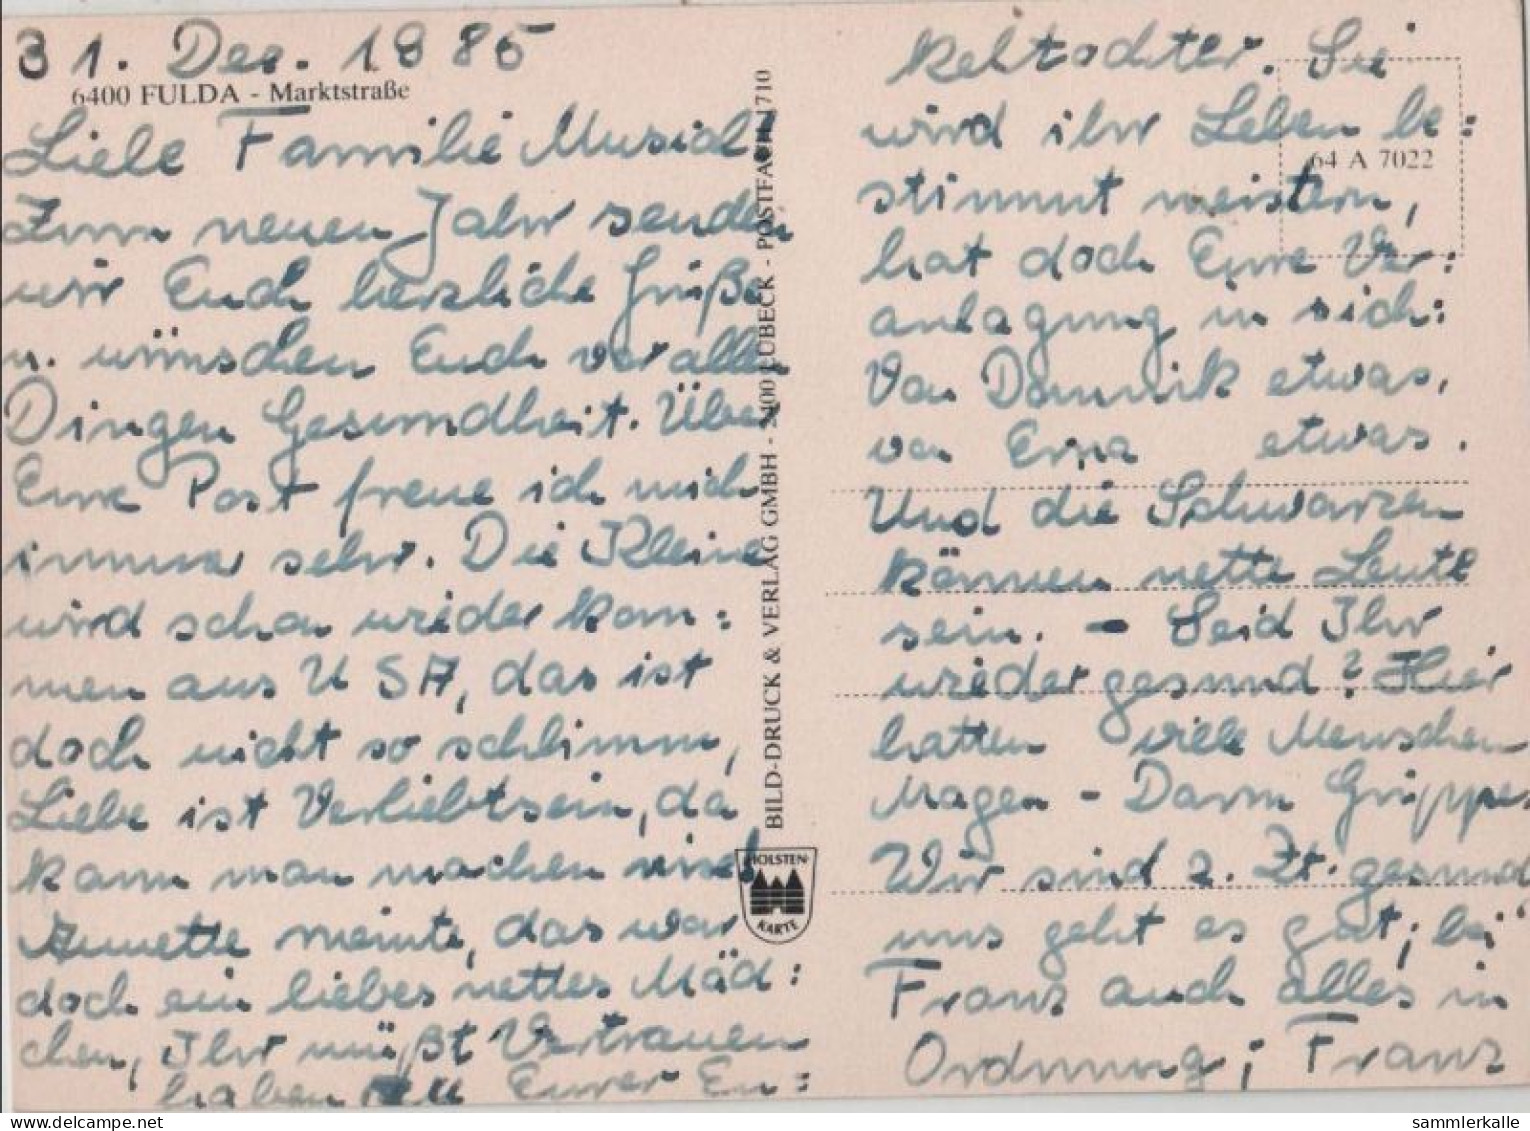 31. Dez. 1985
6400 FULDA - Marktstraße
Liebe Familie
Zum neuen Jahr senden
wir Euch herzliche Grüße
u. wünschen Euch vor allen
Dingen Gesundheit. Über
Eure Post freue ich mich
immer sehr. Die Kleine
wird schon wieder kom=
men aus USA, das ist
doch nicht so schlimm,
Liebe ist Verliebtsein, da
kann man machen
Annette meinte, das war
doch ein liebes nettes Mäd:
chen, Ihr müßt Vertrauen
haben zu Eurer En:
BILD-DRUCK & VERLAG GMBH - 2400 LÜBECK - POSTFACH 1710
HOLSTEN-
KARTE
keltochter. Sie
64 A 7022
wird ihr Leben be:
stimmt meistern,
hat doch Eure Ver:
anlagung in sich:
Von Dominik etwas,
von Erna etwas.
Und die Schwarzen
können nette Leute
sein. - Seid Ihr
wieder gesund? Hier
hatten viele Menschen
Magen - Darm Grippe.
Wir sind z. Zt. gesund
uns geht es gut; bei
Franz auch alles in
Ordnung; Franz
sammlerkalle
delcampe.net